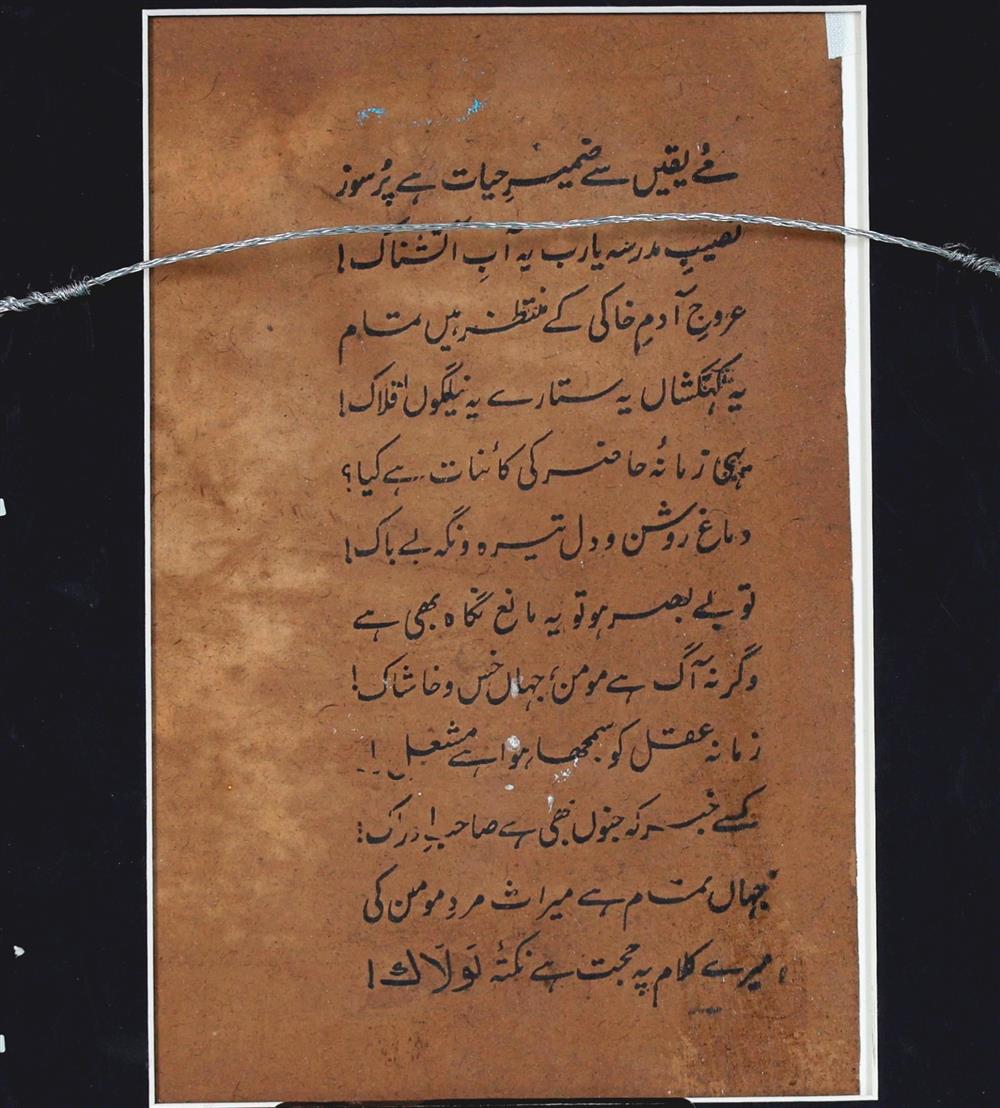 مۓ یقیں سے ضمیرِ حیات ہے پُرسوز
نصیبِ مدرسہ یارب یہ آبِ آتشناک!
عروجِ آدمِ خاکی کے منتظر ہیں تمام
یہ کہکشاں یہ ستارے یہ نیلگوں افلاک!
یہی زمانۂ حاضر کی کائنات ہے کیا؟
دماغ روشن و دل تیرہ و نگہ بے باک!
تو بے بصر ہو تو یہ مانعِ نگاہ بھی ہے
وگرنہ آگ ہے مومن، جہاں خس و خاشاک!
زمانہ عقل کو سمجھا ہوا ہے مشعل
کسے خبر کہ جنوں بھی ہے صاحبِ ادراک!
جہاں تمام ہے میراث مردِ مومن کی
میرے کلام پہ حجت ہے نکتۂ لَولَاک!